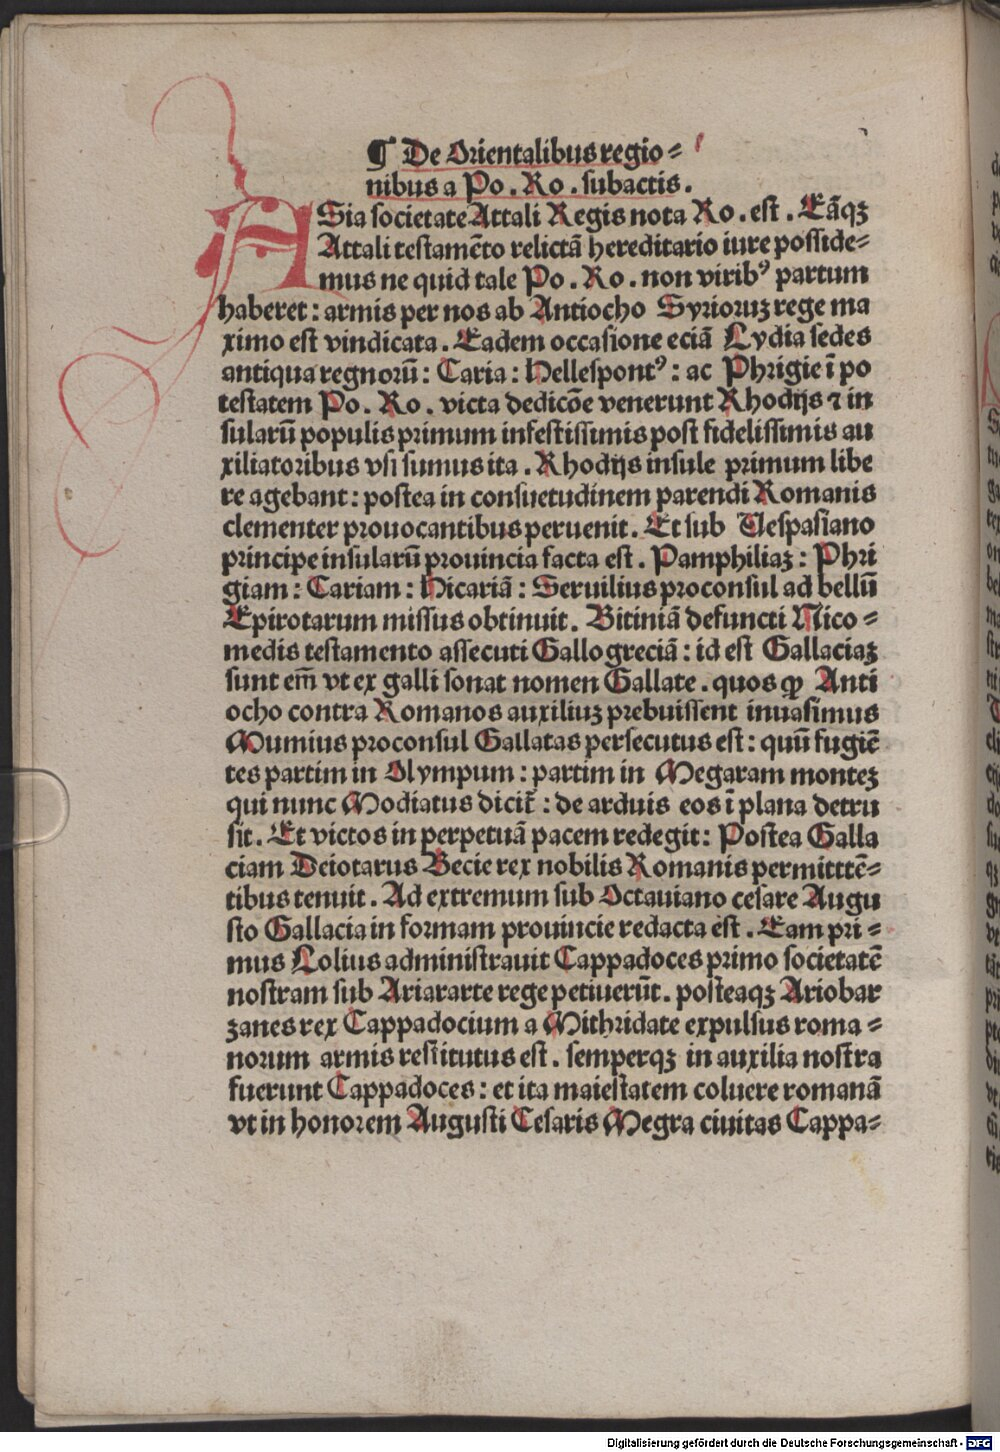 ¶ De Orientalibus regio⸗
nibus a Po. Ro. subactis.
ASia societate Attali Regis nota Ro. est. Eāqꝫ
Attali testamēto relictā hereditario iure posside⸗
mus ne quid tale Po. Ro. non viribꝰ partum
haberet: armis per nos ab Antiocho Syrioruꝫ rege ma
ximo est vindicata. Eadem occasione eciā Lydia sedes
antiqua regnorū: Caria: Hellespontꝰ: ac Phrigie ī po
testatem Po. Ro. victa dedicōe venerunt Rhodijs ⁊ in
sularū populis primum infestissimis post fidelissimis au
xiliatoribus vsi sumus ita. Rhodijs insule primum libe
re agebant: postea in consuetudinem parendi Romanis
clementer prouocantibus peruenit. Et sub Vespasiano
principe insularū prouincia facta est. Pamphiliaꝫ: Phri
giam: Cariam: Hicariā: Seruilius proconsul ad bellū
Epirotarum missus obtinuit. Bitiniā defuncti Nico⸗
medis testamento assecuti Gallogreciā: id est Gallaciaꝫ
sunt em̄ vt ex galli sonat nomen Gallate. quos ꝙ Anti
ocho contra Romanos auxiliuꝫ prebuissent inuasimus
Mumius proconsul Gallatas persecutus est: quū fugiē
tes partim in Olympum: partim in Megaram monteꝫ
qui nunc Modiatus dicit̄: de arduis eos ī plana detru
sit. Et victos in perpetuā pacem redegit: Postea Galla
ciam Deiotarus Becie rex nobilis Romanis permitttē⸗
tibus tenuit. Ad extremum sub Octauiano cesare Augu
sto Gallacia in formam prouincie redacta est. Eam pri⸗
mus Lolius administrauit Cappadoces primo societatē
nostram sub Ariararte rege petiuerūt. posteaqꝫ Ariobar
zanes rex Cappadocium a Mithridate expulsus roma⸗
norum armis restitutus est. semperqꝫ in auxilia nostra
fuerunt Cappadoces: et ita maiestatem coluere romanā
vt in honorem Augusti Cesaris Megra ciuitas Cappa⸗
Digitalisierung gefördert durch die Deutsche Forschungsgemeinschaft - DFG